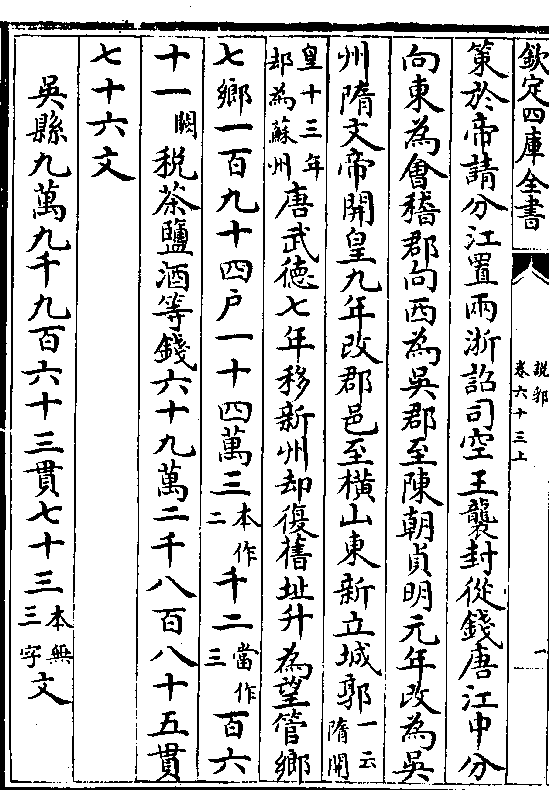 欽定四庫全書
説郛
卷六十三上
一
策於帝請分江置兩浙詔司空王襲封從錢唐江中分
向東為會稽郡向西為吳郡至陳朝貞明元年改為吳
州隋文帝開皇九年改郡邑至橫山東新立城郭一云隋開
皇十三年却為蘇州唐武德七年移新州却復舊址升為望管鄉
七鄉一百九十四户一十四萬三本作二千二當作三百六
十一闕税茶鹽酒等錢六十九萬二千八百八十五貫
七十六文
吳縣九萬九千九百六十三貫七十三本無三字文